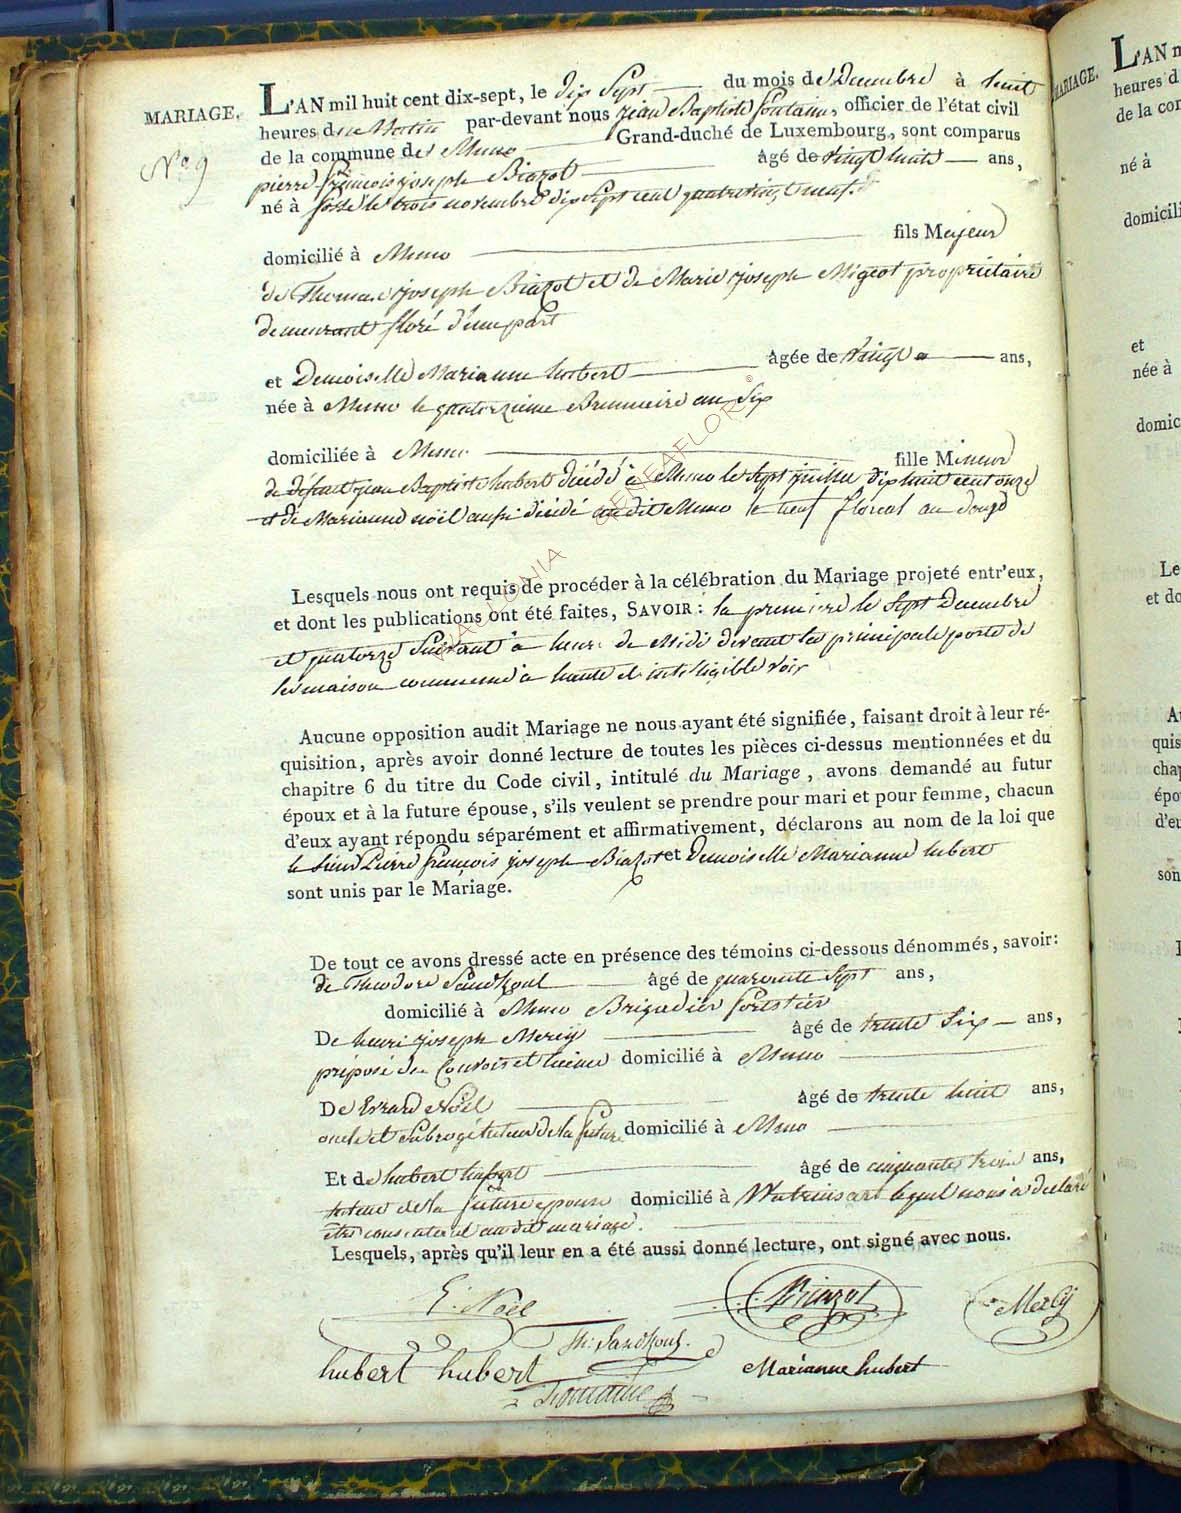 MARIAGE.
N.º 9
L'AN mil huit cent dix-sept, le dix Sept du mois de Decembre à huit
heures du Matin par-devant nous jean Baptiste fontaine, officier de l'état civil
de la commune de Muno Grand-duché de Luxembourg, sont comparus
pierre françois joseph Biazot âgé de vingt huit ans,
né à fossé le trois novembre dix Sept cent quatrevingt neuf.
domicilié à Muno fils Majeur
de Thomas joseph Biazot et de Marie joseph Migeot propriétaire
demeurant floré d'une part
et Demoiselle Marianne hubert âgée de vingt ans,
née à Muno le quatorzieme Brumaire an Six
domiciliée à Muno fille Mineur
de défunt jean Baptiste hubert décédé à Muno le Sept juillet dix huit cent onze
et de Marianne noël aussi décédé au dit Muno le neuf floreal an douze
Lesquels nous ont requis de procéder à la célébration du Mariage projeté entr'eux,
et dont les publications ont été faites, SAVOIR: la premiere le Sept Decembre
et quatorze Suivant à heure de Midi devant la principale porte de
la maison commune à haute et intelligible voix
Aucune opposition audit Mariage ne nous ayant été signifiée, faisant droit à leur ré-
quisition, après avoir donné lecture de toutes les pièces ci-dessus mentionnées et du
chapitre 6 du titre du Code civil, intitulé du Mariage, avons demandé au futur
époux et à la future épouse, s'ils veulent se prendre pour mari et pour femme, chacun
d'eux ayant répondu séparément et affirmativement, déclarons au nom de la loi que
le Sieur Pierre françois joseph Biazot et Demoiselle Marianne hubert
sont unis par le Mariage.
De tout ce avons dressé acte en présence des témoins ci-dessous dénommés, savoir:
de Theodore Sandkoul âgé de quarante Sept ans,
domicilié à Muno Brigadier forestier
De henri joseph Mercy âgé de trente Six ans,
préposé des domicilié à Muno
De Evrard Noël âgé de trente huit ans,
oncle et Subrogé tuteur de la future domicilié à Muno
Et de hubert hubert âgé de cinquante trois ans,
tuteur de la future epouse domicilié à Watrinsart lequel nous a declaré
être consenter et au dit mariage.
Lesquels, après qu'il leur en a été aussi donné lecture, ont signé avec nous.
E. Noël
Biazot
Mercy
Th: Sandkoul.
hubert hubert
Marianne hubert
Fontaine
WALLONIA GENEAFLOR
MARIAGE.
L'AN m
heures d
de la con
né à
domicili
et
née à
domic
Les
et do
Au
quis
chap
épo
d'eu
son